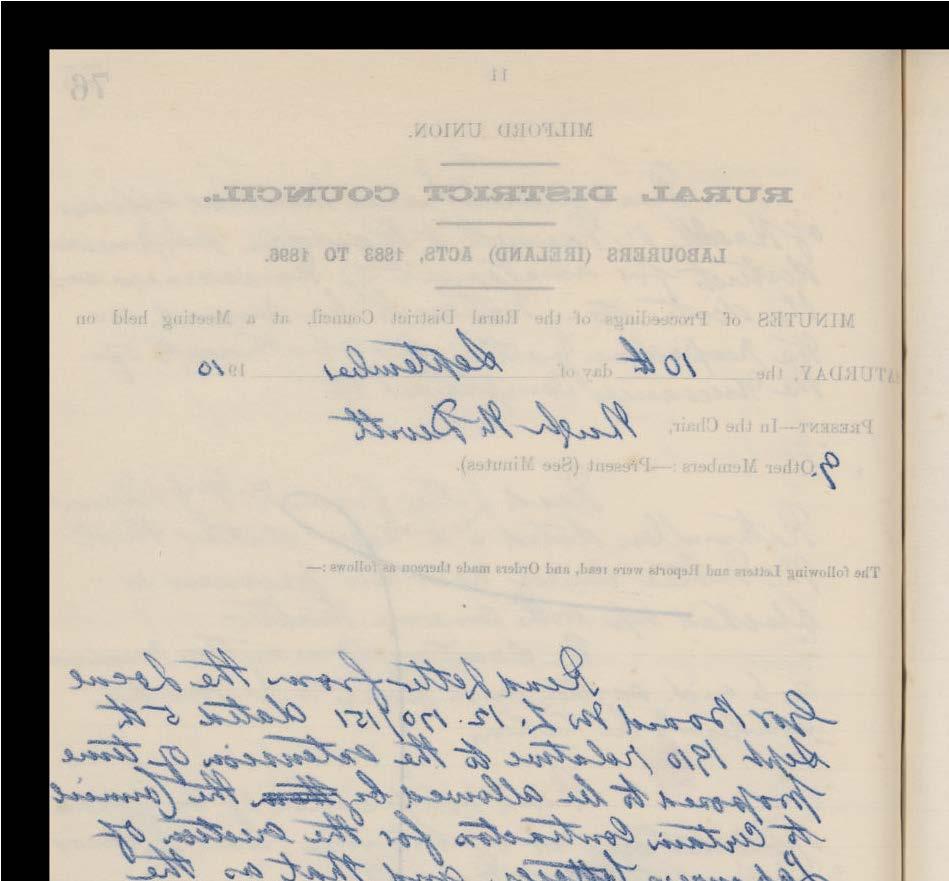 76
11
MILFORD UNION.
RURAL DISTRICT COUNCIL.
LABOURERS (IRELAND) ACTS, 1883 TO 1896.
MINUTES of Proceedings of the Rural District Council, at a Meeting held on
SATURDAY, the 10th day of September 1910
PRESENT—In the Chair, Hugh McDevitt
Other Members:—Present (See Minutes).
The following Letters and Reports were read, and Orders made thereon as follows:—
Read Letter from the Local
Gov Board No L. 12. 170/151 dated 5th
Sept 1910 relative to the extension of time
proposed to be allowed by the Council
to Certain Contractors for the erection of
Labourers Cottages and that as the